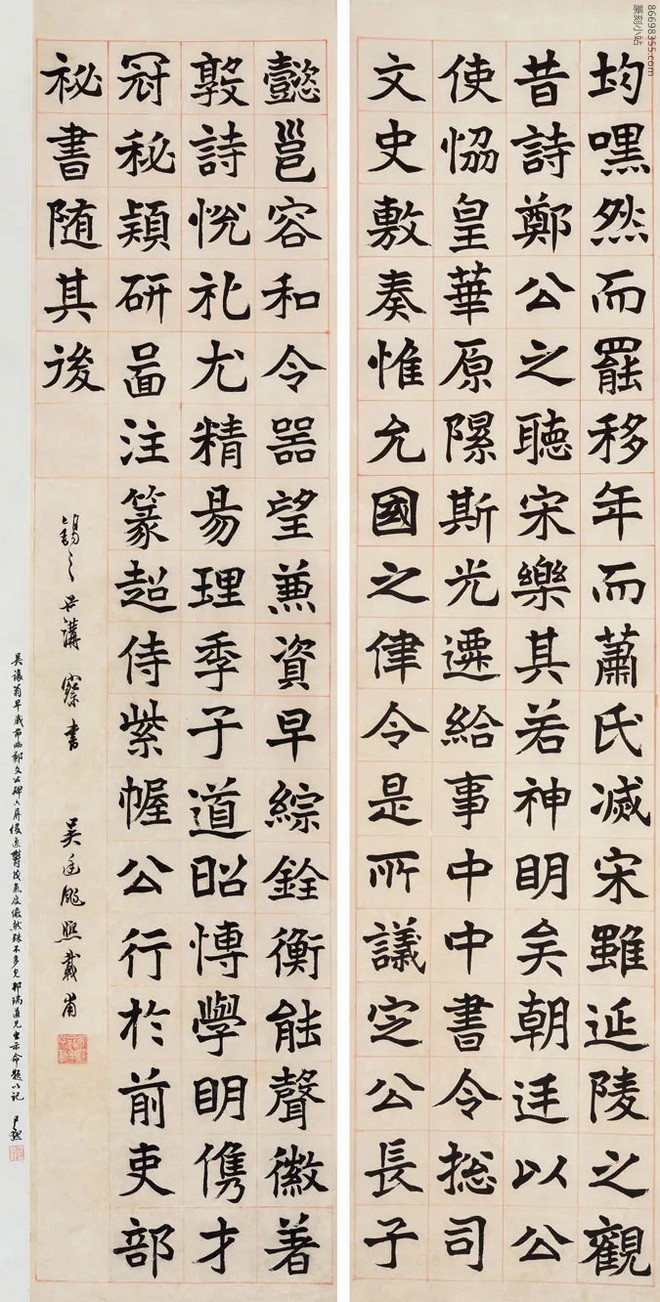 均嘿然而罷移年而蕭氏滅宋雖延陵之觀
昔詩鄭公之聽宋樂其若神明矣朝廷以公
使恊皇華原隰斯光遷給事中中書令捴司
文史敷奏惟允國之律令是所議定公長子
懿邕容和令器望兼資早綜銓衡能聲徽著
敦詩悅礼尤精昜理季子道昭博學明儁才
冠秘穎研啚注篆超侍紫幄公行於前吏部
祕書随其後
書 吳廷颺熙載甫
86698355.com
篆刻小站